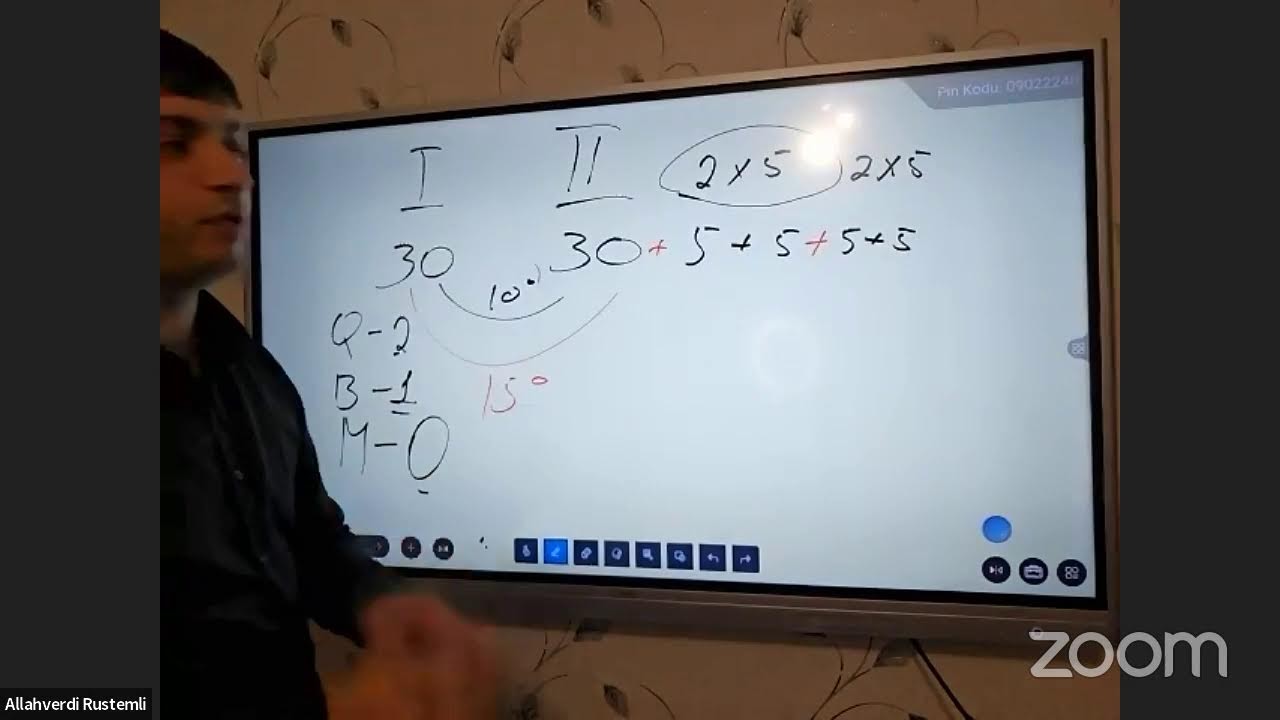 Pin Kodu: 0902224
I II 2×5 2×5
30 30 + 5 + 5 + 5 + 5
10°
Q-2
B-1
15°
M-0
zoom
Allahverdi Rustemli